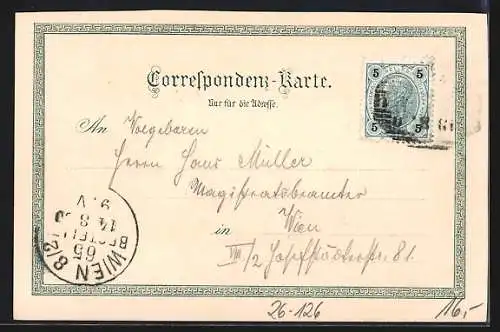 Correspondenz-Karte.
Nur für die Adresse.
5 5
5 5
An Wolgeboren
Herrn Hans Müller
Magistratsbeamten
in Wien
VIII/2 Josefstädterstr. 81.
WIEN 8/2
65
BESTELLT
14. 8.
9. V
26-126
16,-